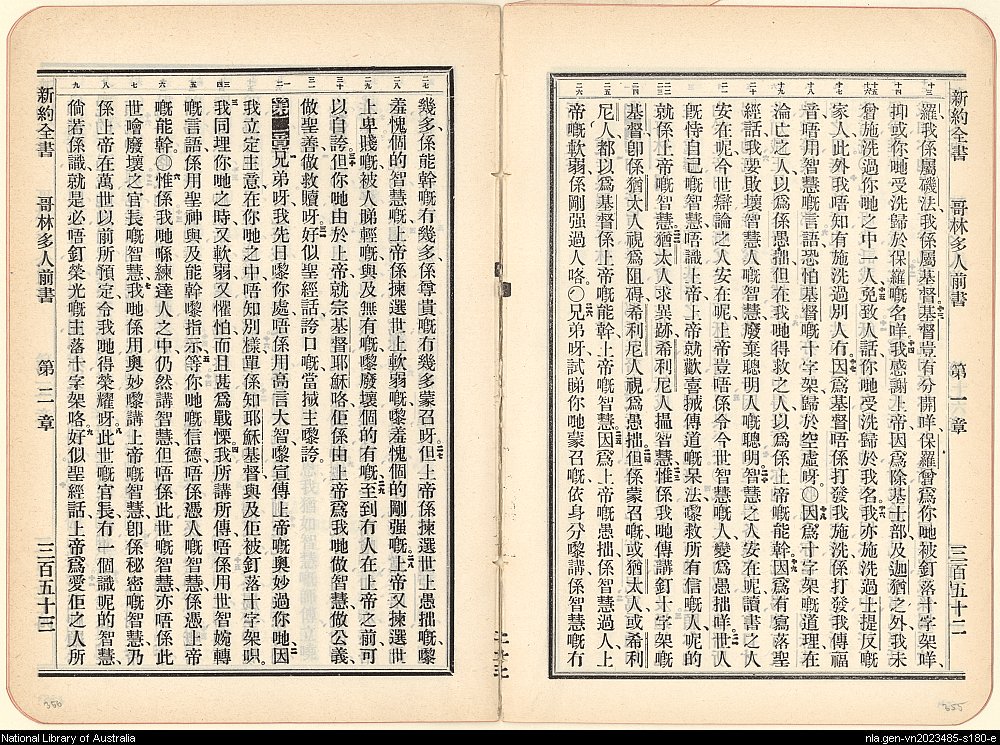 新約全書　哥林多人前書　第一章　三百五十二
羅、我係屬磯法、我係屬基督、基督豈有分開咩、保羅曾爲你哋被釘落十字架咩、
抑或你哋受洗歸於保羅嘅名咩、我感謝上帝、因爲除基士部及迦猶之外、我未
曾施洗過你哋之中一人、免致人話你哋受洗歸於我名、我亦施洗過士提反嘅
家人、此外我唔知有施洗過別人冇、因爲基督唔係打發我施洗、係打發我傳福
音、唔用智慧嘅言語、恐怕基督嘅十字架歸於空虛呀。〇因爲十字架嘅道理、在
淪亡之人、以爲係愚拙、但在我哋得救之人、以爲係上帝嘅能幹、因爲有寫落聖
經話、我要敗壞智慧人嘅智慧、廢棄聰明人嘅聰明、智慧之人安在呢、讀書之人
安在呢、今世辯論之人安在呢、上帝豈唔係令今世智慧嘅人、變爲愚拙咩、世人
旣恃自己嘅智慧、唔識上帝、上帝就歡喜搣傳道嘅呆法、嚟救所有信嘅人、呢的
就係上帝嘅智慧、猶太人求異跡、希利尼人搵智慧、惟係我哋傳講釘十字架
基督、卽係猶太人視爲阻碍、希利尼人視爲愚拙、但係蒙召嘅、或猶太人、或希利
尼人、都以爲基督係上帝嘅能幹、上帝嘅智慧、因爲上帝嘅愚拙、係智慧過人、上
帝嘅軟弱、係剛强過人咯。〇兄弟呀、試睇你哋蒙召嘅、依身分嚟講、係智慧嘅有
幾多、係能幹嘅有幾多、係尊貴嘅有幾多蒙召呀、但上帝係揀選世上愚拙嘅、嚟
羞愧個的智慧嘅、上帝係揀選世上軟弱嘅、嚟羞愧個的剛强嘅、上帝又揀選世
上卑賤嘅、被人睇輕嘅、與及無有嘅、嚟廢壞個的有嘅、至到有人在上帝之前、可
以自誇、但你哋由於上帝、就宗基督耶穌咯、佢係由上帝爲我哋做智慧、做公義、
做聖善、做救贖呀、好似聖經話、誇口嘅當搣主嚟誇。
第二章 兄弟呀、我先日嚟你處、唔係用高言大智、嚟宣傳上帝嘅奧妙過你哋、因
我立定主意、在你哋之中、唔知別樣、單係知耶穌基督、與及佢被釘落十字架呮。
我同埋你哋之時、又軟弱、又懼怕、而且甚爲戰慄、我所講所傳、唔係用世智婉轉
嘅言語、係用聖神與及能幹嚟指示、等你哋嘅信德、唔係憑人嘅智慧、係憑上帝
嘅能幹。〇惟係我哋喺練達人之中、仍然講智慧、但唔係此世嘅智慧、亦唔係此
世噲廢壞之官長嘅智慧、我哋係用奧妙嚟講上帝嘅智慧、卽係秘密嘅智慧、乃
係上帝在萬世以前所預定、令我哋得榮耀呀、此世嘅官長、有一個識呢的智慧、
倘若係識、就是必唔釘榮光嘅主落十字架咯、好似聖經話、上帝爲愛佢之人所
新約全書　哥林多人前書　第二章　三百五十三
350
355
National Library of Australia
nla.gen-vn2023485-s180-e